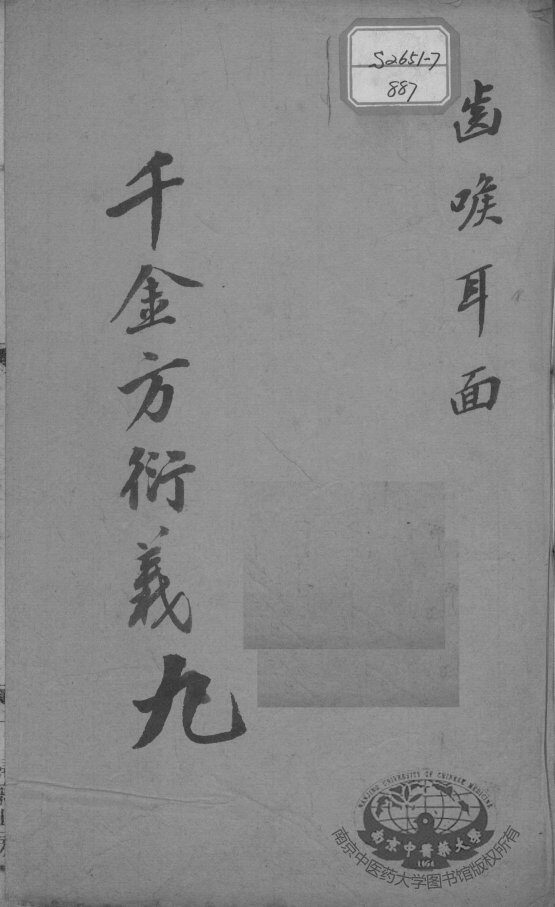 S2651-7
887
齒喉耳面
千金方衍義九
NANJING UNIVERSITY OF CHINESE MEDICINE
南京中醫藥大學
1954
南京中医药大学图书馆版权所有